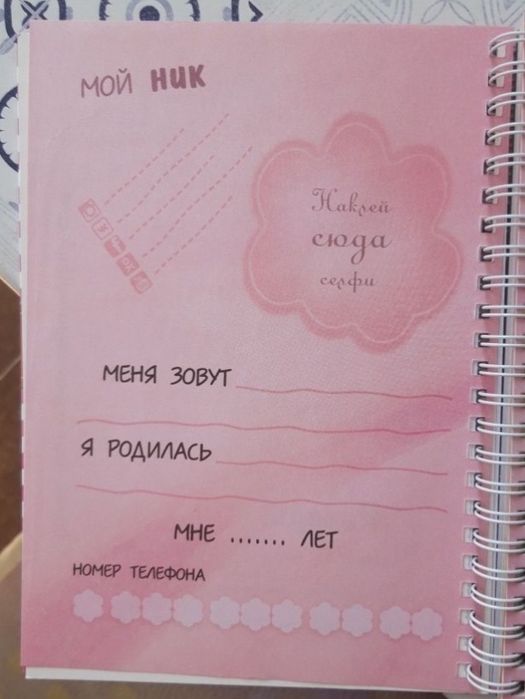 МОЙ НИК
Наклей
сюда
селфи
МЕНЯ ЗОВУТ
Я РОДИЛАСЬ
МНЕ ....... ЛЕТ
НОМЕР ТЕЛЕФОНА